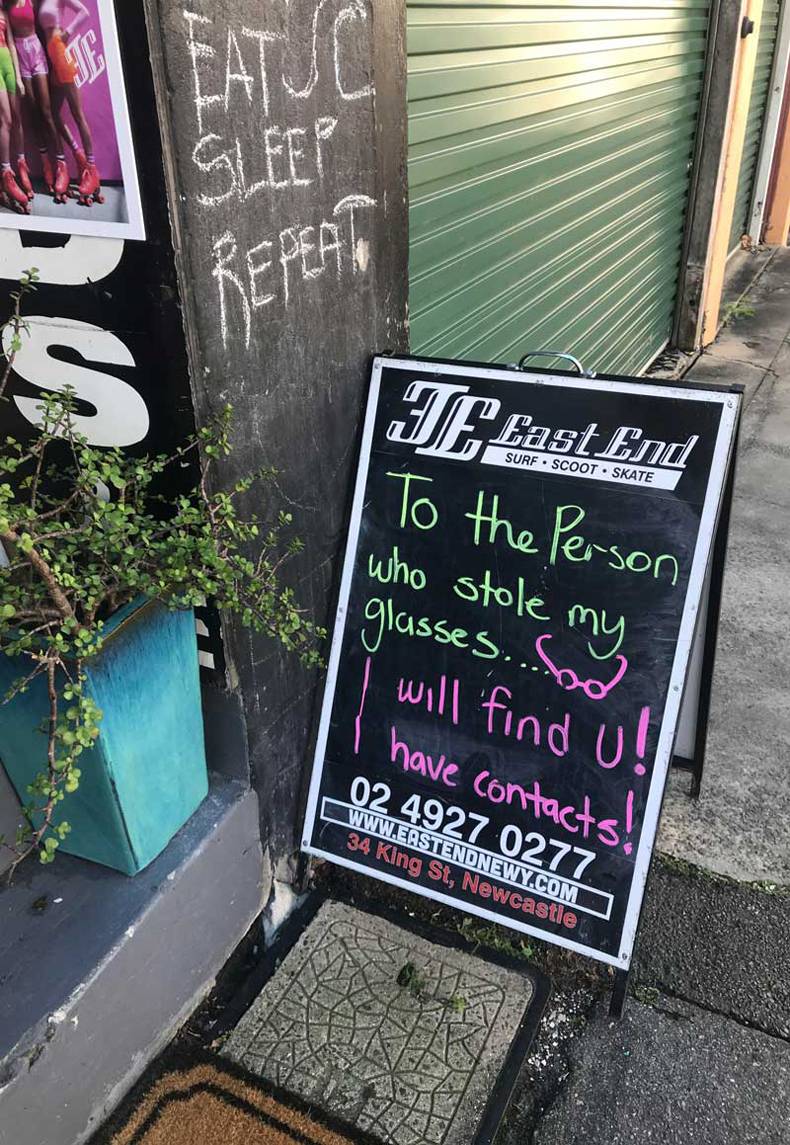 EAT
SLEEP
REPEAT
S
East End
SURF • SCOOT • SKATE
To the Person
who stole my
glasses.....
I will find U!
I have contacts!
02 4927 0277
WWW.EASTENDNEWY.COM
34 King St, Newcastle